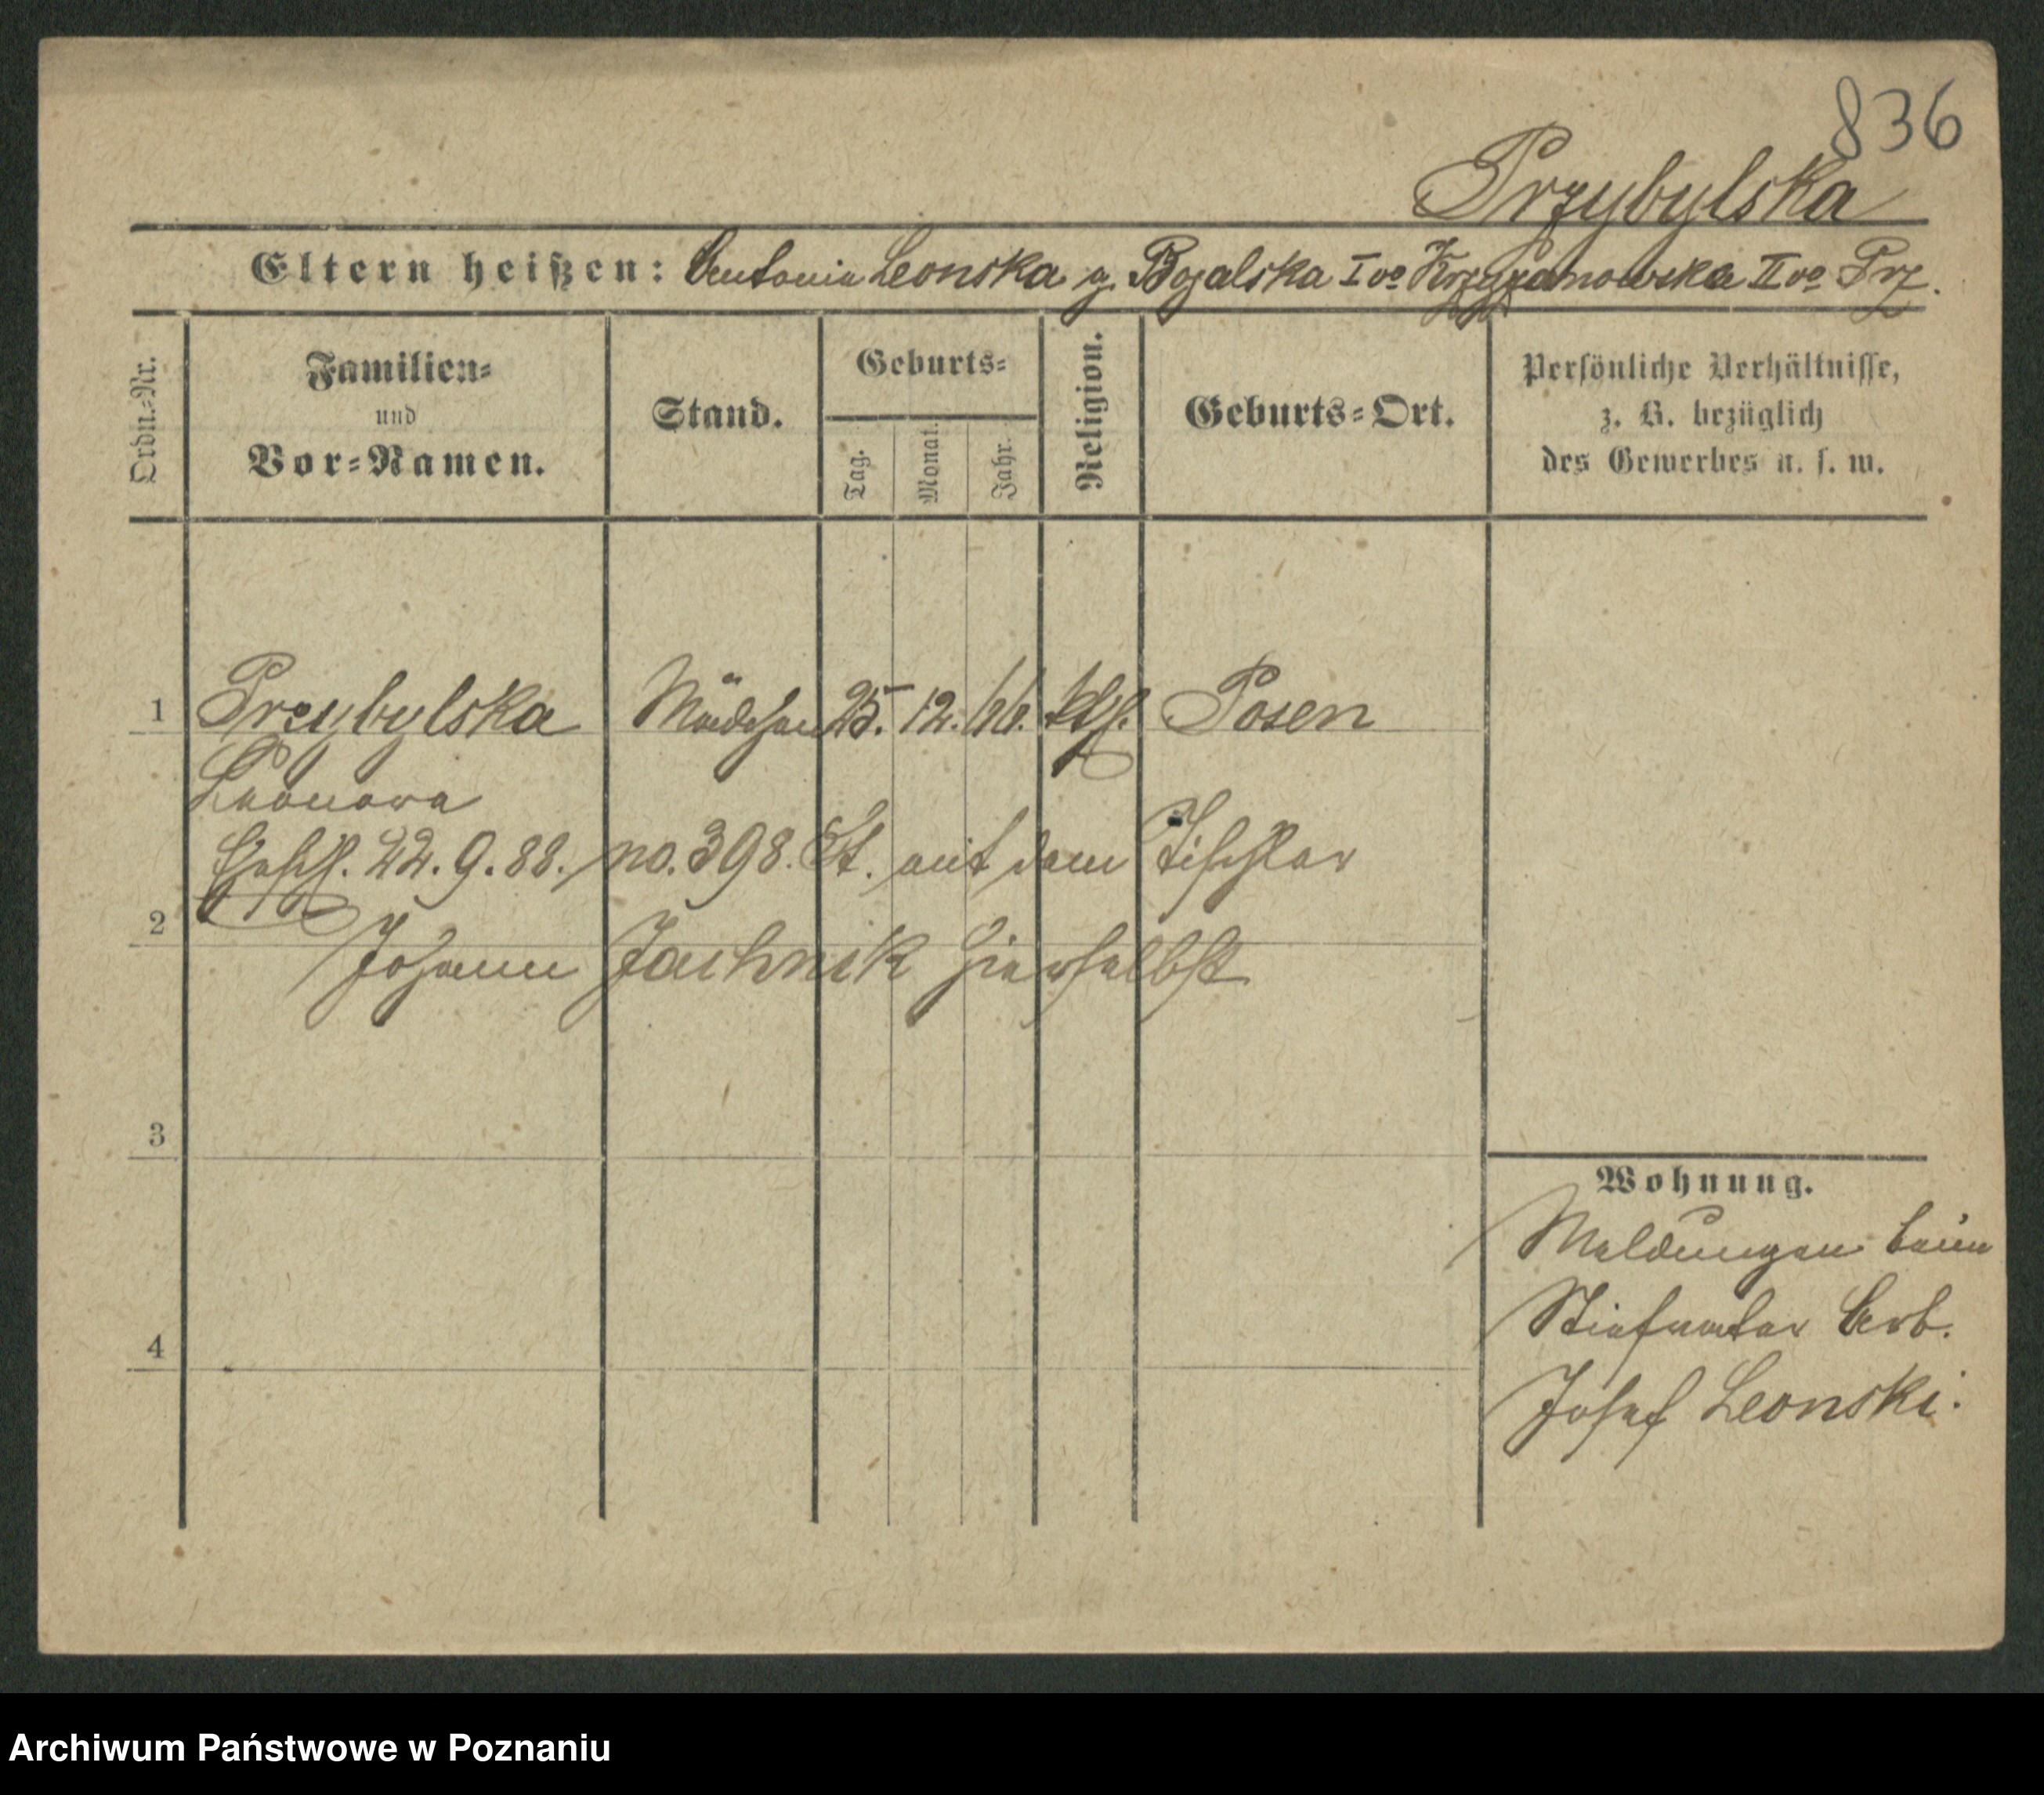 836
Przybylska
Eltern heißen: Antonia Leonska g. Bogalska I vo Krzyzanowska II vo Prz.
Ordn.-Nr.
Familien-
und
Vor-Namen.
Stand.
Geburts-
Tag.
Monat.
Jahr.
Religion.
Geburts-Ort.
Persönliche Verhältnisse,
z. B. bezüglich
des Gewerbes u. s. w.
1 Przybylska Mädchen 25. 12. 66. kth. Posen
Leonora
Ehesch. 22. 9. 88. no. 398. St. mit dem Tischler
2
Johann Jachnik hierselbst
3
4
Wohnung.
Meldungen beim
Stiefvater Arb.
Josef Leonski.
Archiwum Państwowe w Poznaniu